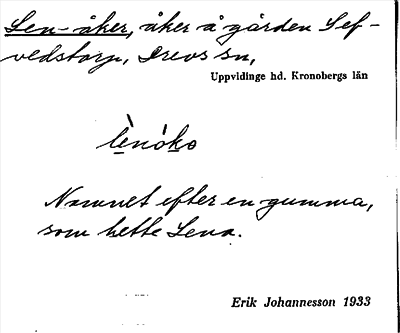 Len-åker, åker å gården Sef-
vedstorp, Drevs sn,
Uppvidinge hd. Kronobergs län
lènóko
Namnet efter en gumma,
som hette Lena.
Erik Johannesson 1933